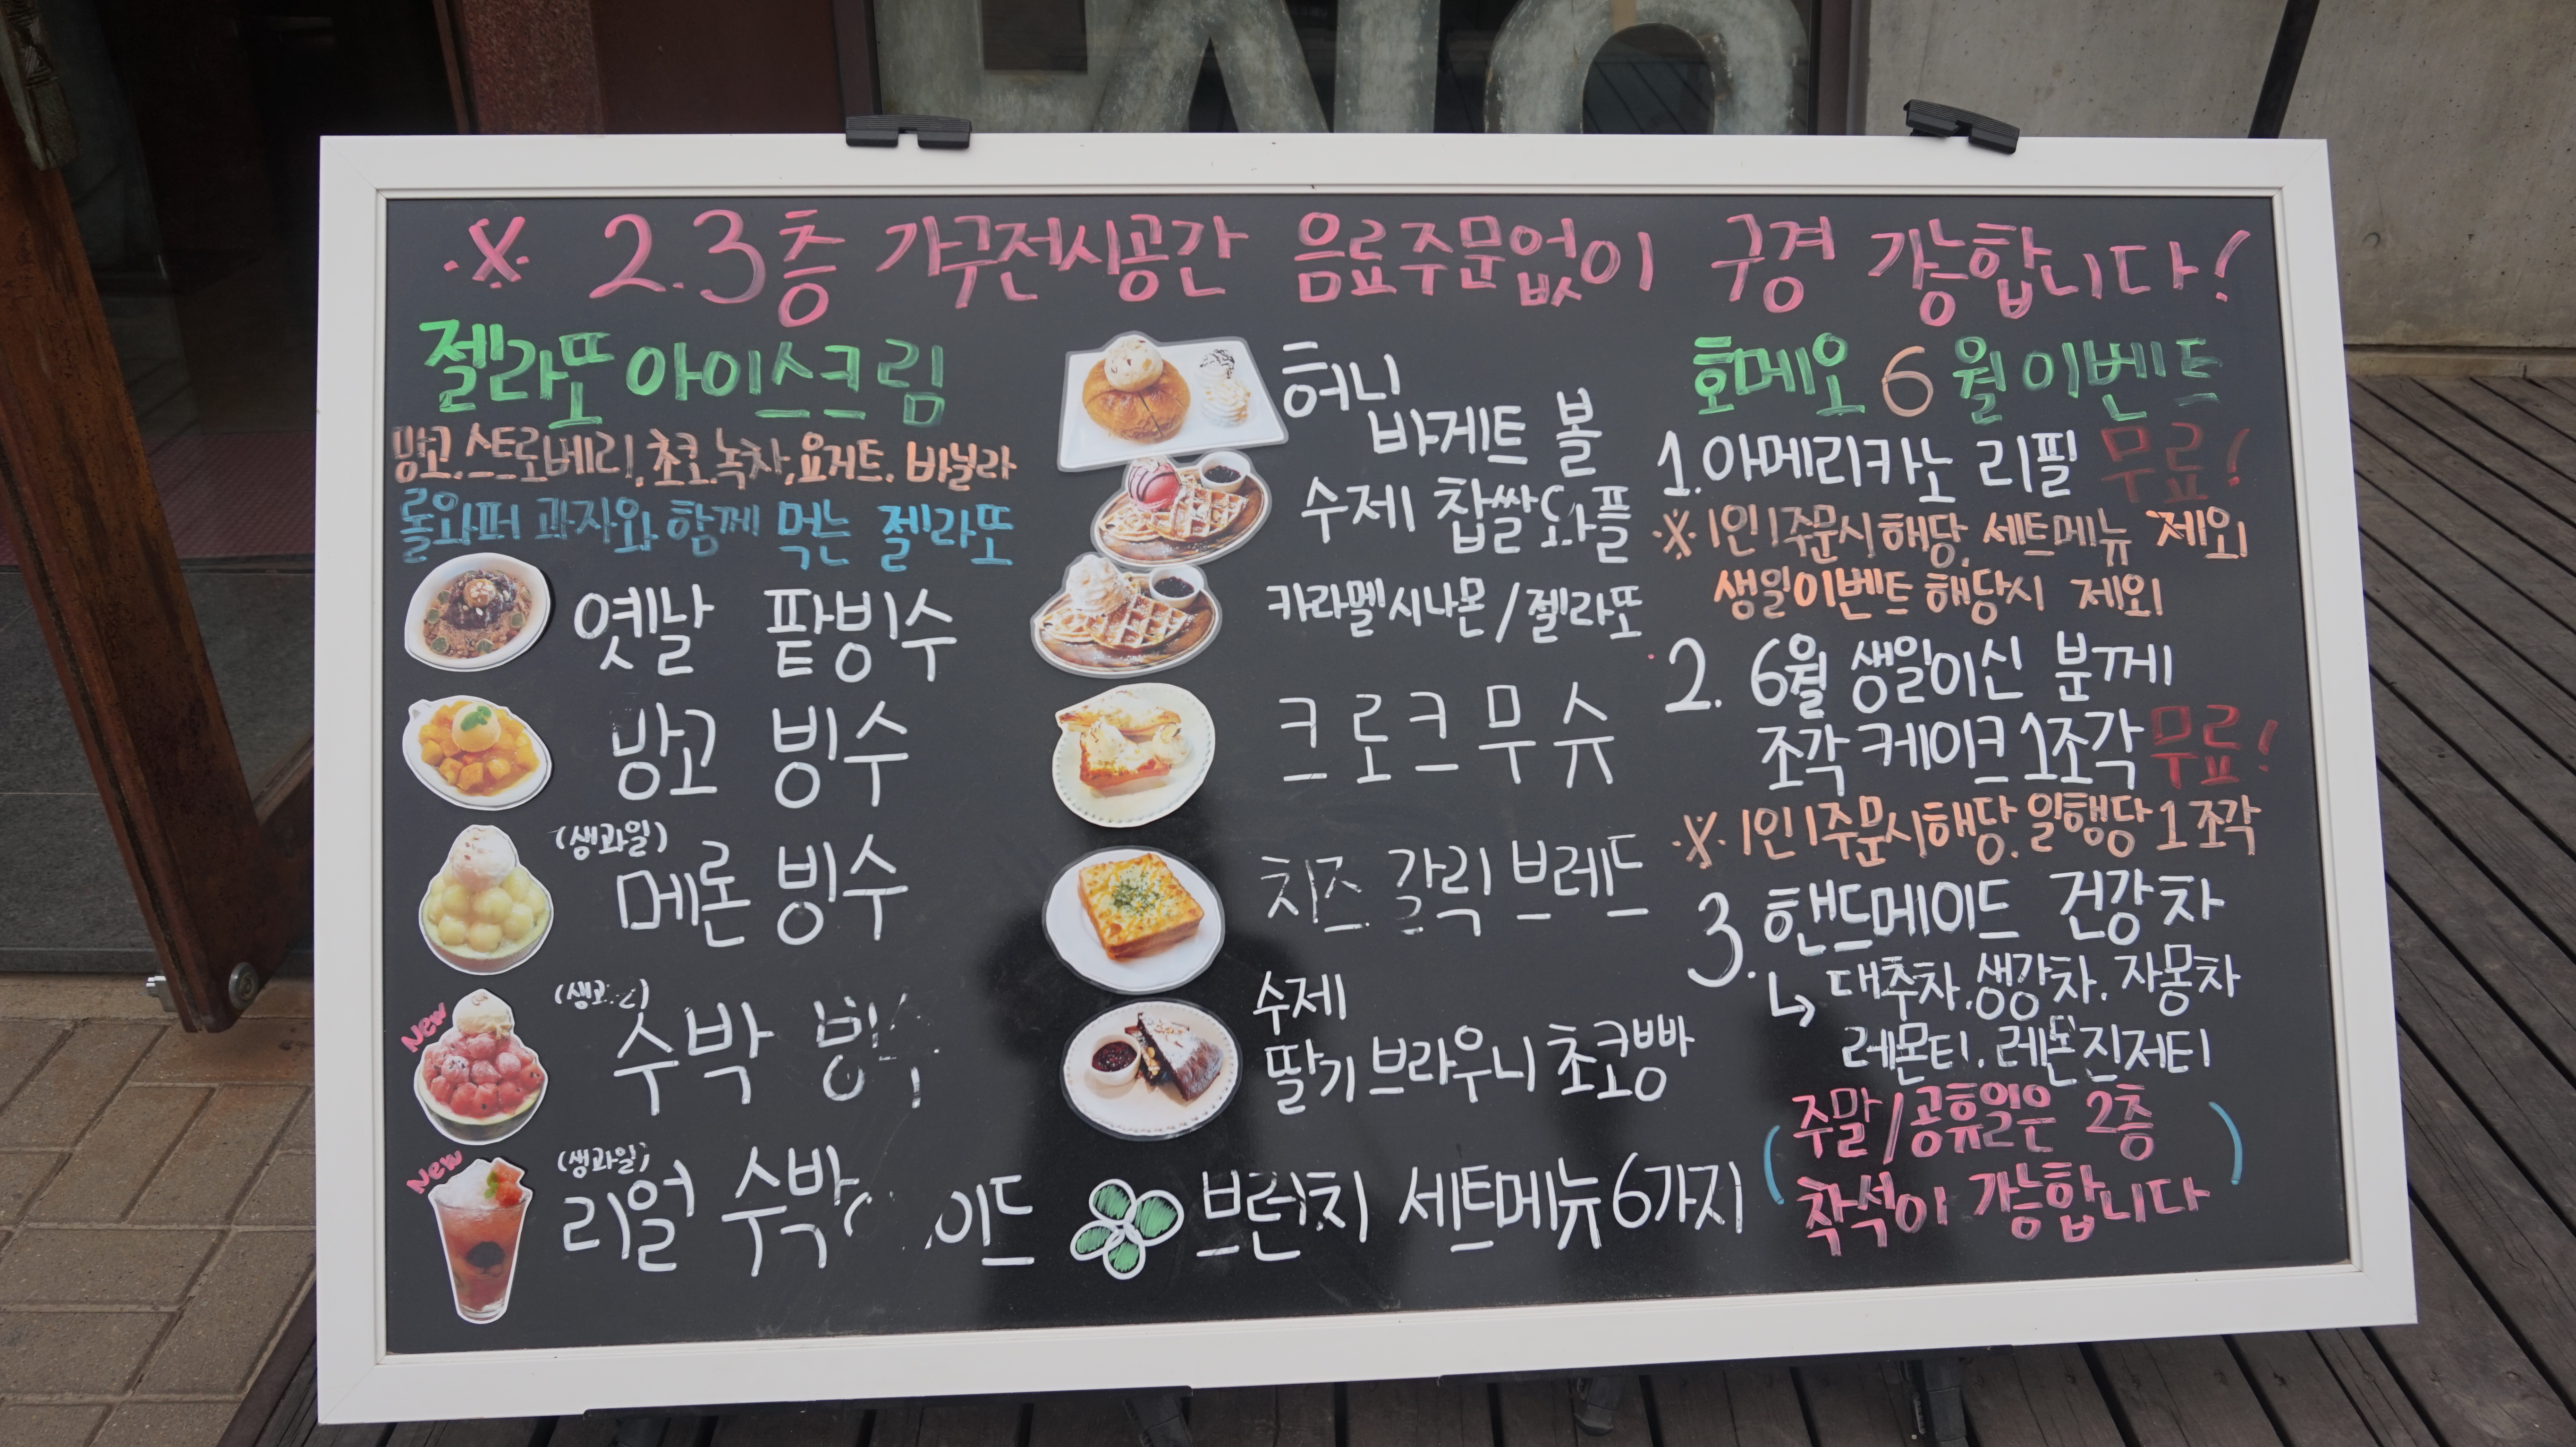 ※ 2.3층 가구전시공간 음료주문없이 구경 가능합니다!
젤라또 아이스크림
망고.스트로베리.초코.녹차.요거트.바닐라
롤와퍼 과자와 함께 먹는 젤라또
옛날 팥빙수
망고 빙수
(생과일)
메론 빙수
New
수박
New
(생과일)
리얼 수박
허니
바게트 볼
수제 찹쌀와플
카라멜시나몬/젤라또
크로크무슈
치즈 갈릭 브레드
수제
딸기 브라우니 초코빵
브런치 세트메뉴 6가지
호메오 6월 이벤트
1.아메리카노 리필 무료!
※1인1주문시 해당. 세트메뉴 제외
생일이벤트 해당시 제외
2. 6월 생일이신 분께
조각 케이크 1조각 무료!
※1인1주문시해당. 일행당 1조각
3. 핸드메이드 건강차
↳ 대추차.생강차.자몽차
레몬티.레몬진저티
(주말/공휴일은 2층
착석이 가능합니다)